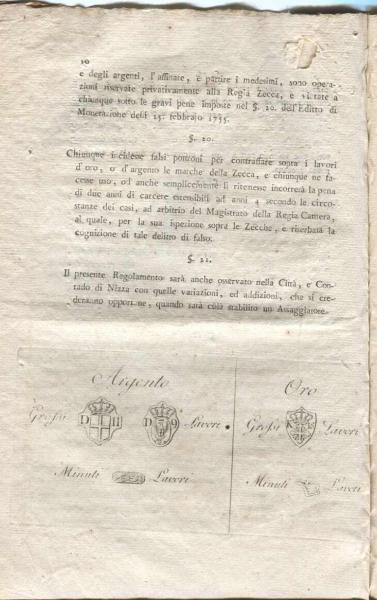 10
e degli argenti, l'affinare, e partire i medesimi, sono opera-
zioni riservate privativamente alla Regia Zecca, e vietate a
chiunque sotto le gravi pene imposte nel §. 20. dell'Editto di
Monetazione delli 15. febbrajo 1755.
§. 20.
Chiunque incidesse falsi ponzoni per contraffare sopra i lavori
d'oro, o d'argento le marche della Zecca, e chiunque ne fa-
cesse uso, od anche semplicemente li ritenesse incorrerà la pena
di due anni di carcere estensibili ad anni 4 secondo le circo-
stanze dei casi, ad arbitrio del Magistrato della Regia Camera,
al quale, per la sua ispezione sopra le Zecche, è riserbata la
cognizione di tale delitto di falso.
§. 21.
Il presente Regolamento sarà anche osservato nella Città, e Con-
tado di Nizza con quelle variazioni, ed addizioni, che si cre-
deranno opportune, quando sarà colà stabilito un Assaggiatore.
Argento Oro
Grossi D H D 9 Lavori Grossi K Lavori
Minuti Lavori Minuti Lavori